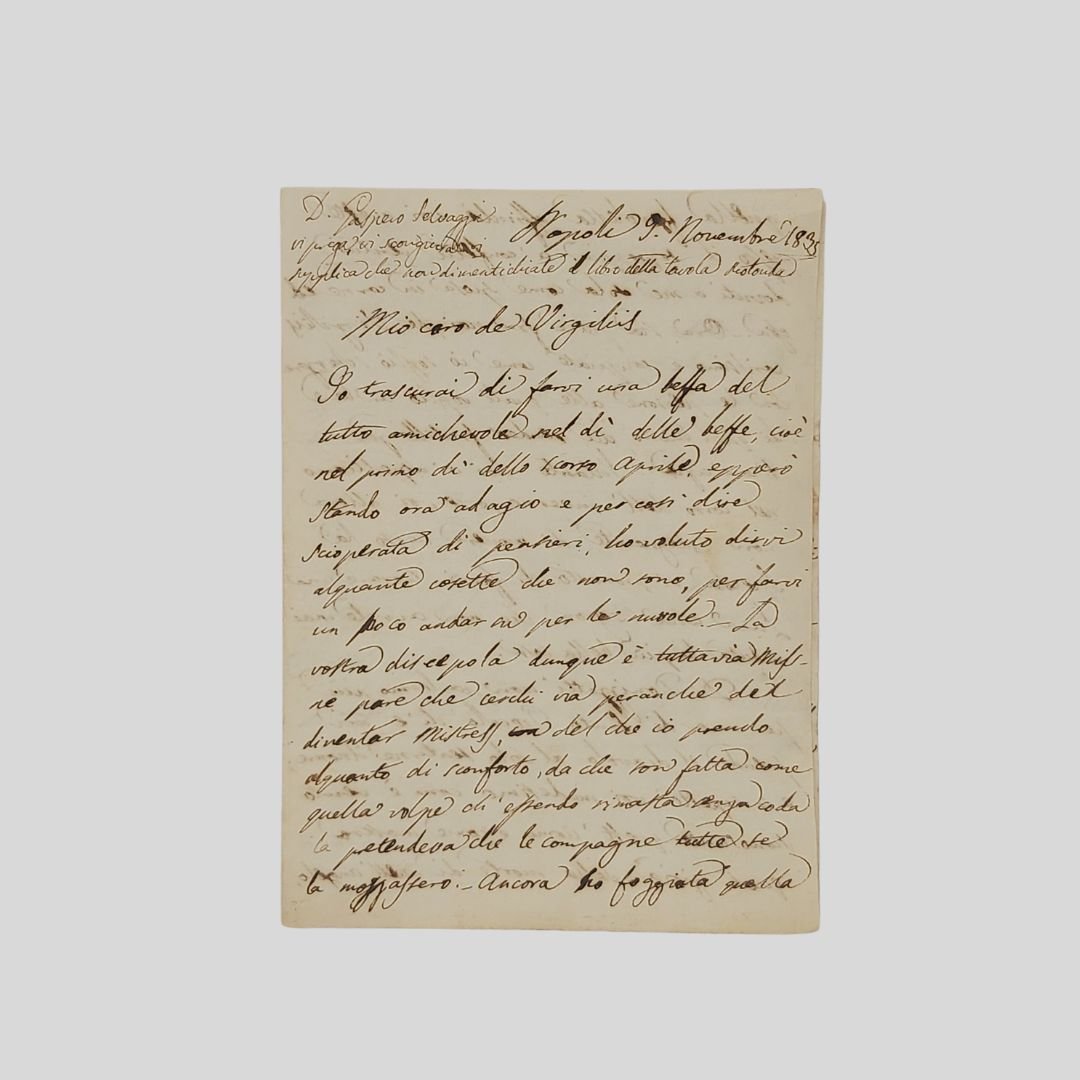 D. Gaspero Selvaggi
vi prega, vi scongiura, vi
supplica che non dimentichiate il libro della tavola rotonda
Napoli 9. Novembre 183
Mio caro de Virgiliis
Io trascurai di farvi una beffa del
tutto amichevole nel dì delle beffe, cioè
nel primo dì dello scorso Aprile, epperò
stando ora ad agio e per così dire
scioperata di pensieri, ho voluto dirvi
alquante cosette che non sono, per farvi
un poco andar su per le nuvole. _ La
vostra discepola dunque è tuttavia Miss-
nè pare che cerchi via per anche del
diventar Mistress, del che io prendo
alquanto di sconforto, da che son fatta come
quella volpe ch'essendo rimasta senza coda
la pretendeva che le compagne tutte se
la mozzassero. _ Ancora ho foggiata quella